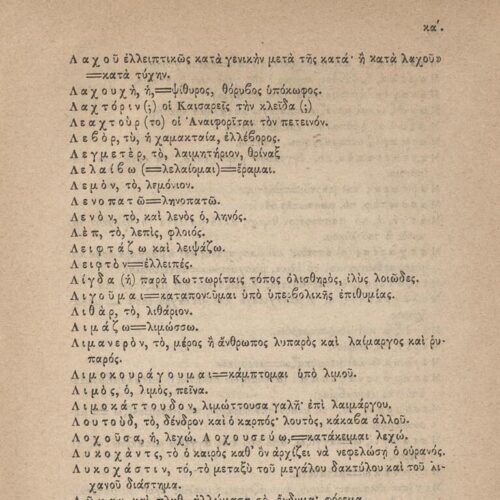 κα΄.
Λαχοῦ ἐλλειπτικῶς κατὰ γενικὴν μετὰ τῆς κατά· ἢ κατὰ λαχοῦ»
=κατὰ τύχην.
Λαχουχή, ἡ,=ψίθυρος, θόρυβος ὑπόκωφος.
Λαχτόριν (;) οἱ Καισαρεῖς τὴν κλεῖδα (;)
Λεαχτοὺρ (το) οἱ Ἀναιφορῖται τὸν πετεινόν.
Λεβὸρ, τὺ, ἡ χαμακταία, ἐλλέβορος.
Λεγμετέρ, τὸ, λαιμητήριον, θρίναξ
Λελαίβω (=λελαίομαι)=ἔραμαι.
Λεμὸν, τὸ, λεμόνιον.
Λενοπατῶ=ληνοπατῶ.
Λενὸν, τὸ, καὶ λενὸς ὁ, ληνός.
Λὲπ, τὸ, λεπὶς, φλοιός.
Λειφτάζω καὶ λειψάζω.
Λειφτὸν=ἐλλειπές.
Λίγδα (ἡ) παρὰ Κωττωρίταις τόπος ὀλισθηρός, ἰλὺς λοιῶδες.
Λιγοῦμαι=καταπονοῦμαι ὑπὸ ὑπερβολικῆς ἐπιθυμίας.
Λιθὰρ, τὸ, λιθάριον.
Λιμάζω=λιμώσσω.
Λιμανερὸν, τὸ, μέρος ἢ ἄνθρωπος λυπαρὸς καὶ λαίμαργος καὶ ῥυ-
παρός.
Λιμοκουράγουμαι=κάμπτομαι ὑπὸ λιμοῦ.
Λιμὸς, ὁ, λιμὸς, πεῖνα.
Λιμοκάττουδον, λιμώττουσα γαλῆ· ἐπὶ λαιμάργου.
Λουτοὺδ, τὸ, δένδρον καὶ ὁ καρπός· λουτὸς, κάκαβα ἀλλοῦ.
Λοχοῦσα, ἡ, λεχώ. Λοχουσεύω,=κατάκειμαι λεχώ.
Λυκοχὰντς, τὸ ὁ καιρὸς καθ᾽ ὃν ἀρχίζει νὰ νεφελώσῃ ὁ οὐρανός.
Λυκοχάστιν, τό, τὸ μεταξὺ τοῦ μεγάλου δακτύλου καὶ τοῦ λι-
χανοῦ διάστημα.